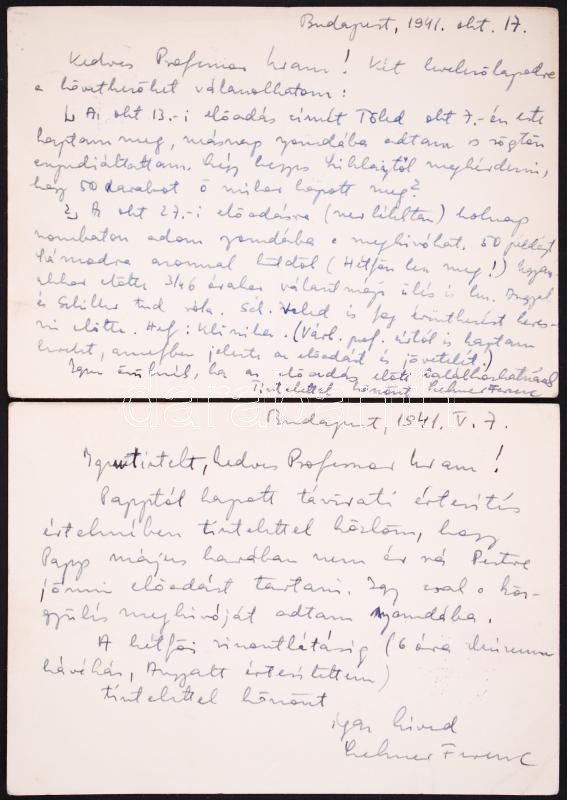 Budapest, 1941. okt. 17.
Kedves Professor Uram! Két levelezőlapodra
a következőket válaszolhatom:
1., Az okt 13.-i előadás címét Tőled okt 7.-én este
kaptam meg, másnap nyomdába adtam s rögtön
expediáltattam. Légy kegyes megkérdezni,
hogy 50 darabot ő mikor kapott meg?
2., Az okt 27.-i előadásra holnap
szombaton adom nyomdába a meghívókat. 50 példányt
Számodra azonnal küldök (Hétfőn lesz meg!)
akkor előtte 3/4 6 órakor választmányi ülés is lesz. Angyal
és Schiller tud róla. Veled is fog érintkezést keres-
ni előtte. Hely: Klinika. (Várh. prof. úrtól is kaptam
levelet, amelyben jelezte az előadást is jövetelét!)
Igen örülnék, ha az előadás előtt találkozhatnánk
Tisztelettel köszönt Lehner Ferenc
Budapest, 1941. V. 7.
Igentisztelt, kedves Professor Uram!
Papptól kapott távirati értesítés
értelmében tisztelettel közlöm, hogy
Papp május havában nem ér rá Pestre
jönni előadást tartani. Így csak a köz-
gyűlés meghívóját adtam nyomdába.
A hétfői viszontlátásig (6 óra Múzeum
kávéház, Angyalt értesítettem)
tisztelettel köszönt
igaz híved
Lehner Ferenc